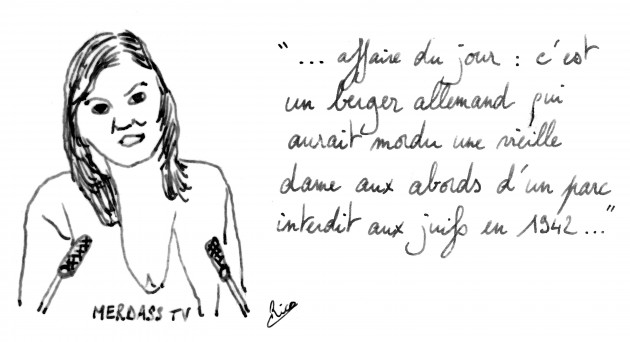 "... affaire du jour : c'est
un berger allemand qui
aurait mordu une vieille
dame aux abords d'un parc
interdit aux juifs en 1942..."
MERDASS TV
Rica